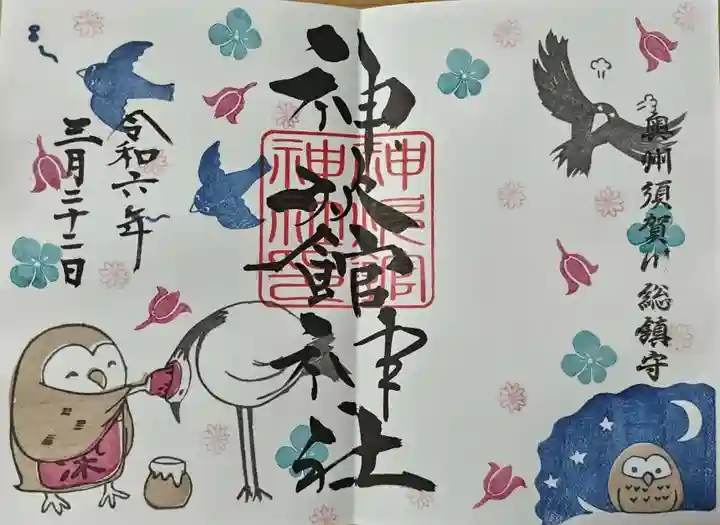 奥州須賀川総鎮守
神炊館神社
神炊館
神社印
令和六年
三月二十二日
染